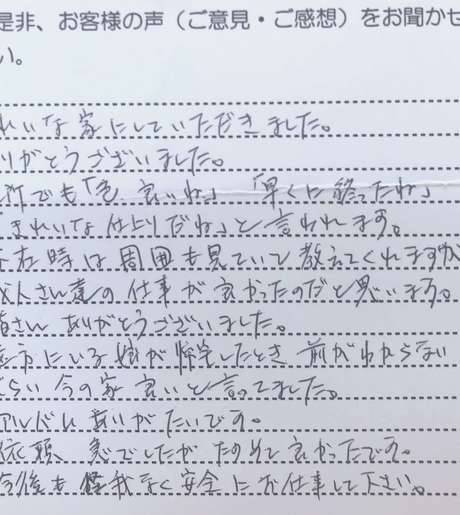 是非、お客様の声（ご意見・ご感想）をお聞かせ
い。
れいな家にしていただきました。
りがとうございました。
所でも「色、良いね」「早くに終ったね」
きれいな仕上りだね」と言われます。
在時は周囲も見ていて教えてくれますが
人さん達の仕事が良かったのだと思います。
皆さんありがとうございました。
市にいる娘が帰宅したとき前がわからない
らい今の家良いと言ってました。
アルドムありがたいです。
依頼、急でしたがたのめて良かったです。
今後も怪我なく安全にお仕事して下さい。